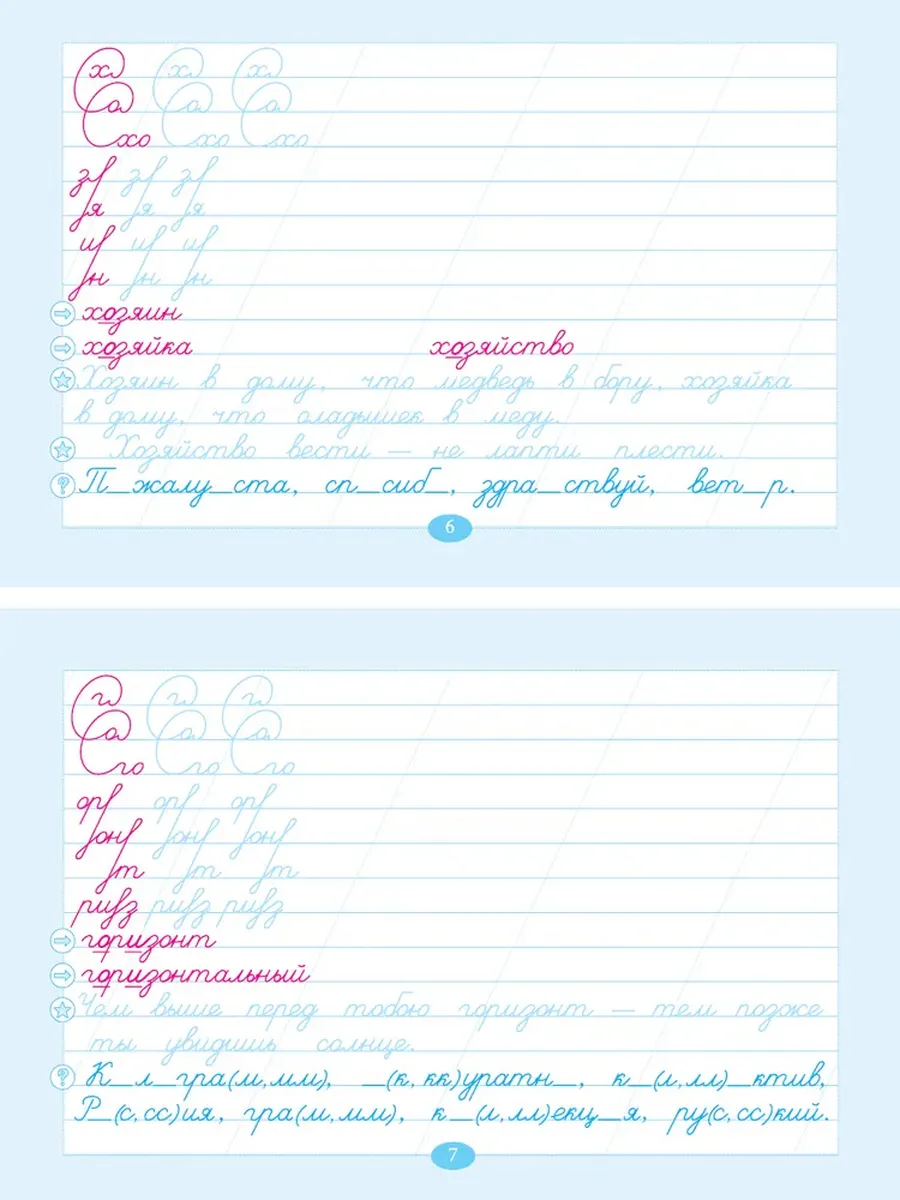 х х х
а а а
хо хо хо
з з з
я я я
и и и
н н н
хозяин
хозяйка хозяйство
Хозяин в дому, что медведь в бору, хозяйка
в дому, что оладышек в меду.
Хозяйство вести — не лапти плести.
П_жалу_ста, сп_сиб_, здра_ствуй, вет_р.
6
г г г
а а а
го го го
ор ор ор
он он он
т т т
риз риз риз
горизонт
горизонтальный
Чем выше перед тобою горизонт — тем позже
ты увидишь солнце.
К_л_гра(м, мм), _(к, кк)уратн_, к_(л, лл)_ктив,
Р_(с, сс)ия, гра(м, мм), к_(л, лл)екц_я, ру(с, сс)кий.
7